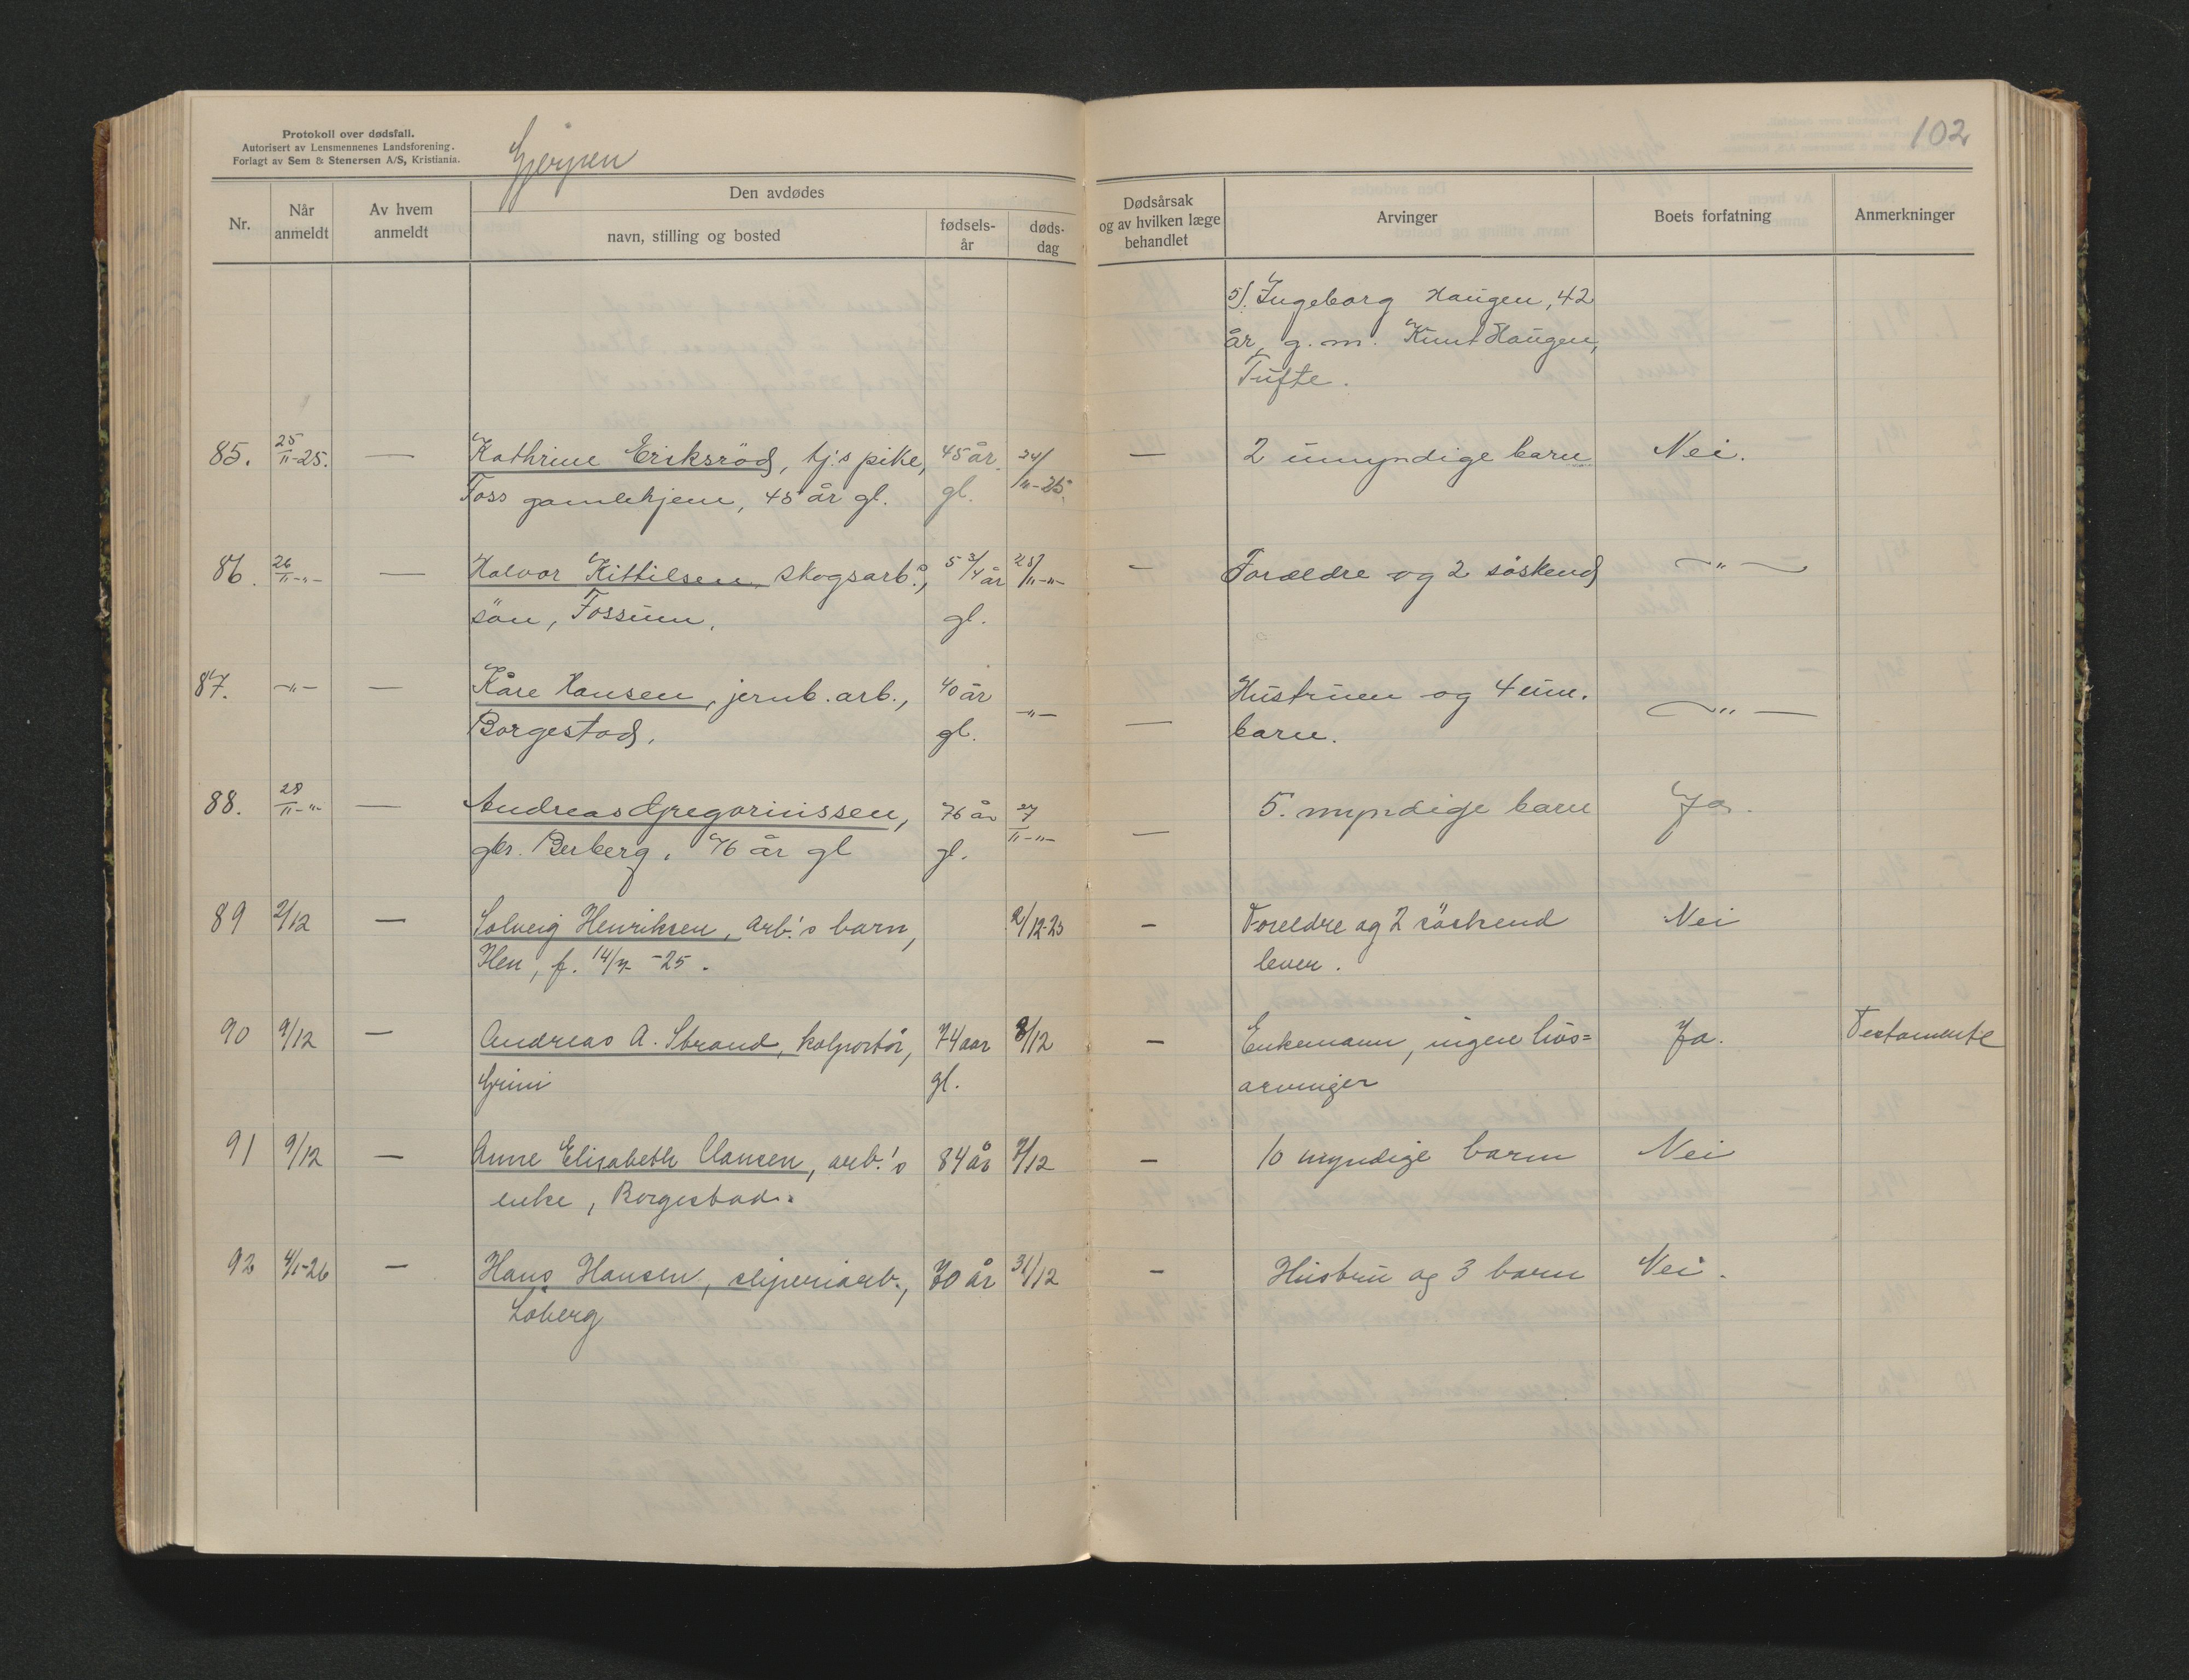 Protokoll over dødsfall.
Autorisert av Lensmennenes Landsforening.
Forlagt av Sem & Stenersen A/S, Kristiania.
Gjerpen
102
Nr.
Når anmeldt
Av hvem anmeldt
Den avdødes
navn, stilling og bosted
fødsels-år
døds-dag
Dødsårsak og av hvilken læge behandlet
Arvinger
Boets forfatning
Anmerkninger
5). Ingeborg Haugen, 42
år, g. m. Knut Haugen,
Tufte.
85. 25/11-25. — Kathrine Eriksröd, tj.s pike, 45 år 24/11-25. — 2 umyndige barn Nei.
Foss gamlehjem, 45 år gl. gl.
86. 26/11-"- — Halvor Kittilsen, skogsarb.s, 5 3/4 år 25/11-"- — Forældre og 2 söskend —"—
sön, Fossum. gl.
87. -"- — Kåre Hansen, jernb. arb., 40 år -"- — Hustruen og 4 um. —"—
Borgestad. gl. barn.
88. 28/11-"- — Andreas Gregoriussen, 76 år 27/11-"- — 5. myndige barn Ja.
gbr. Berberg, 76 år gl gl.
89 2/12 — Solveig Henriksen, arb.'s barn, 2/12-25 — Foreldre og 2 söskend Nei
Hen, f. 14/7-25. lever.
90 9/12 — Andreas A. Strand, kolportör, 74 aar 8/12 — Enkemann, ingen livs= Ja. Testamente
Grini gl. arvinger
91 9/12 — Anne Elisabeth Clausen, arb.'s 84 år 7/12 — 10 myndige barn Nei
enke, Borgestad.
92 4/1-26 — Hans Hansen, sliperiarb., 70 år 31/12 — Hustru og 3 barn Nei.
Löberg